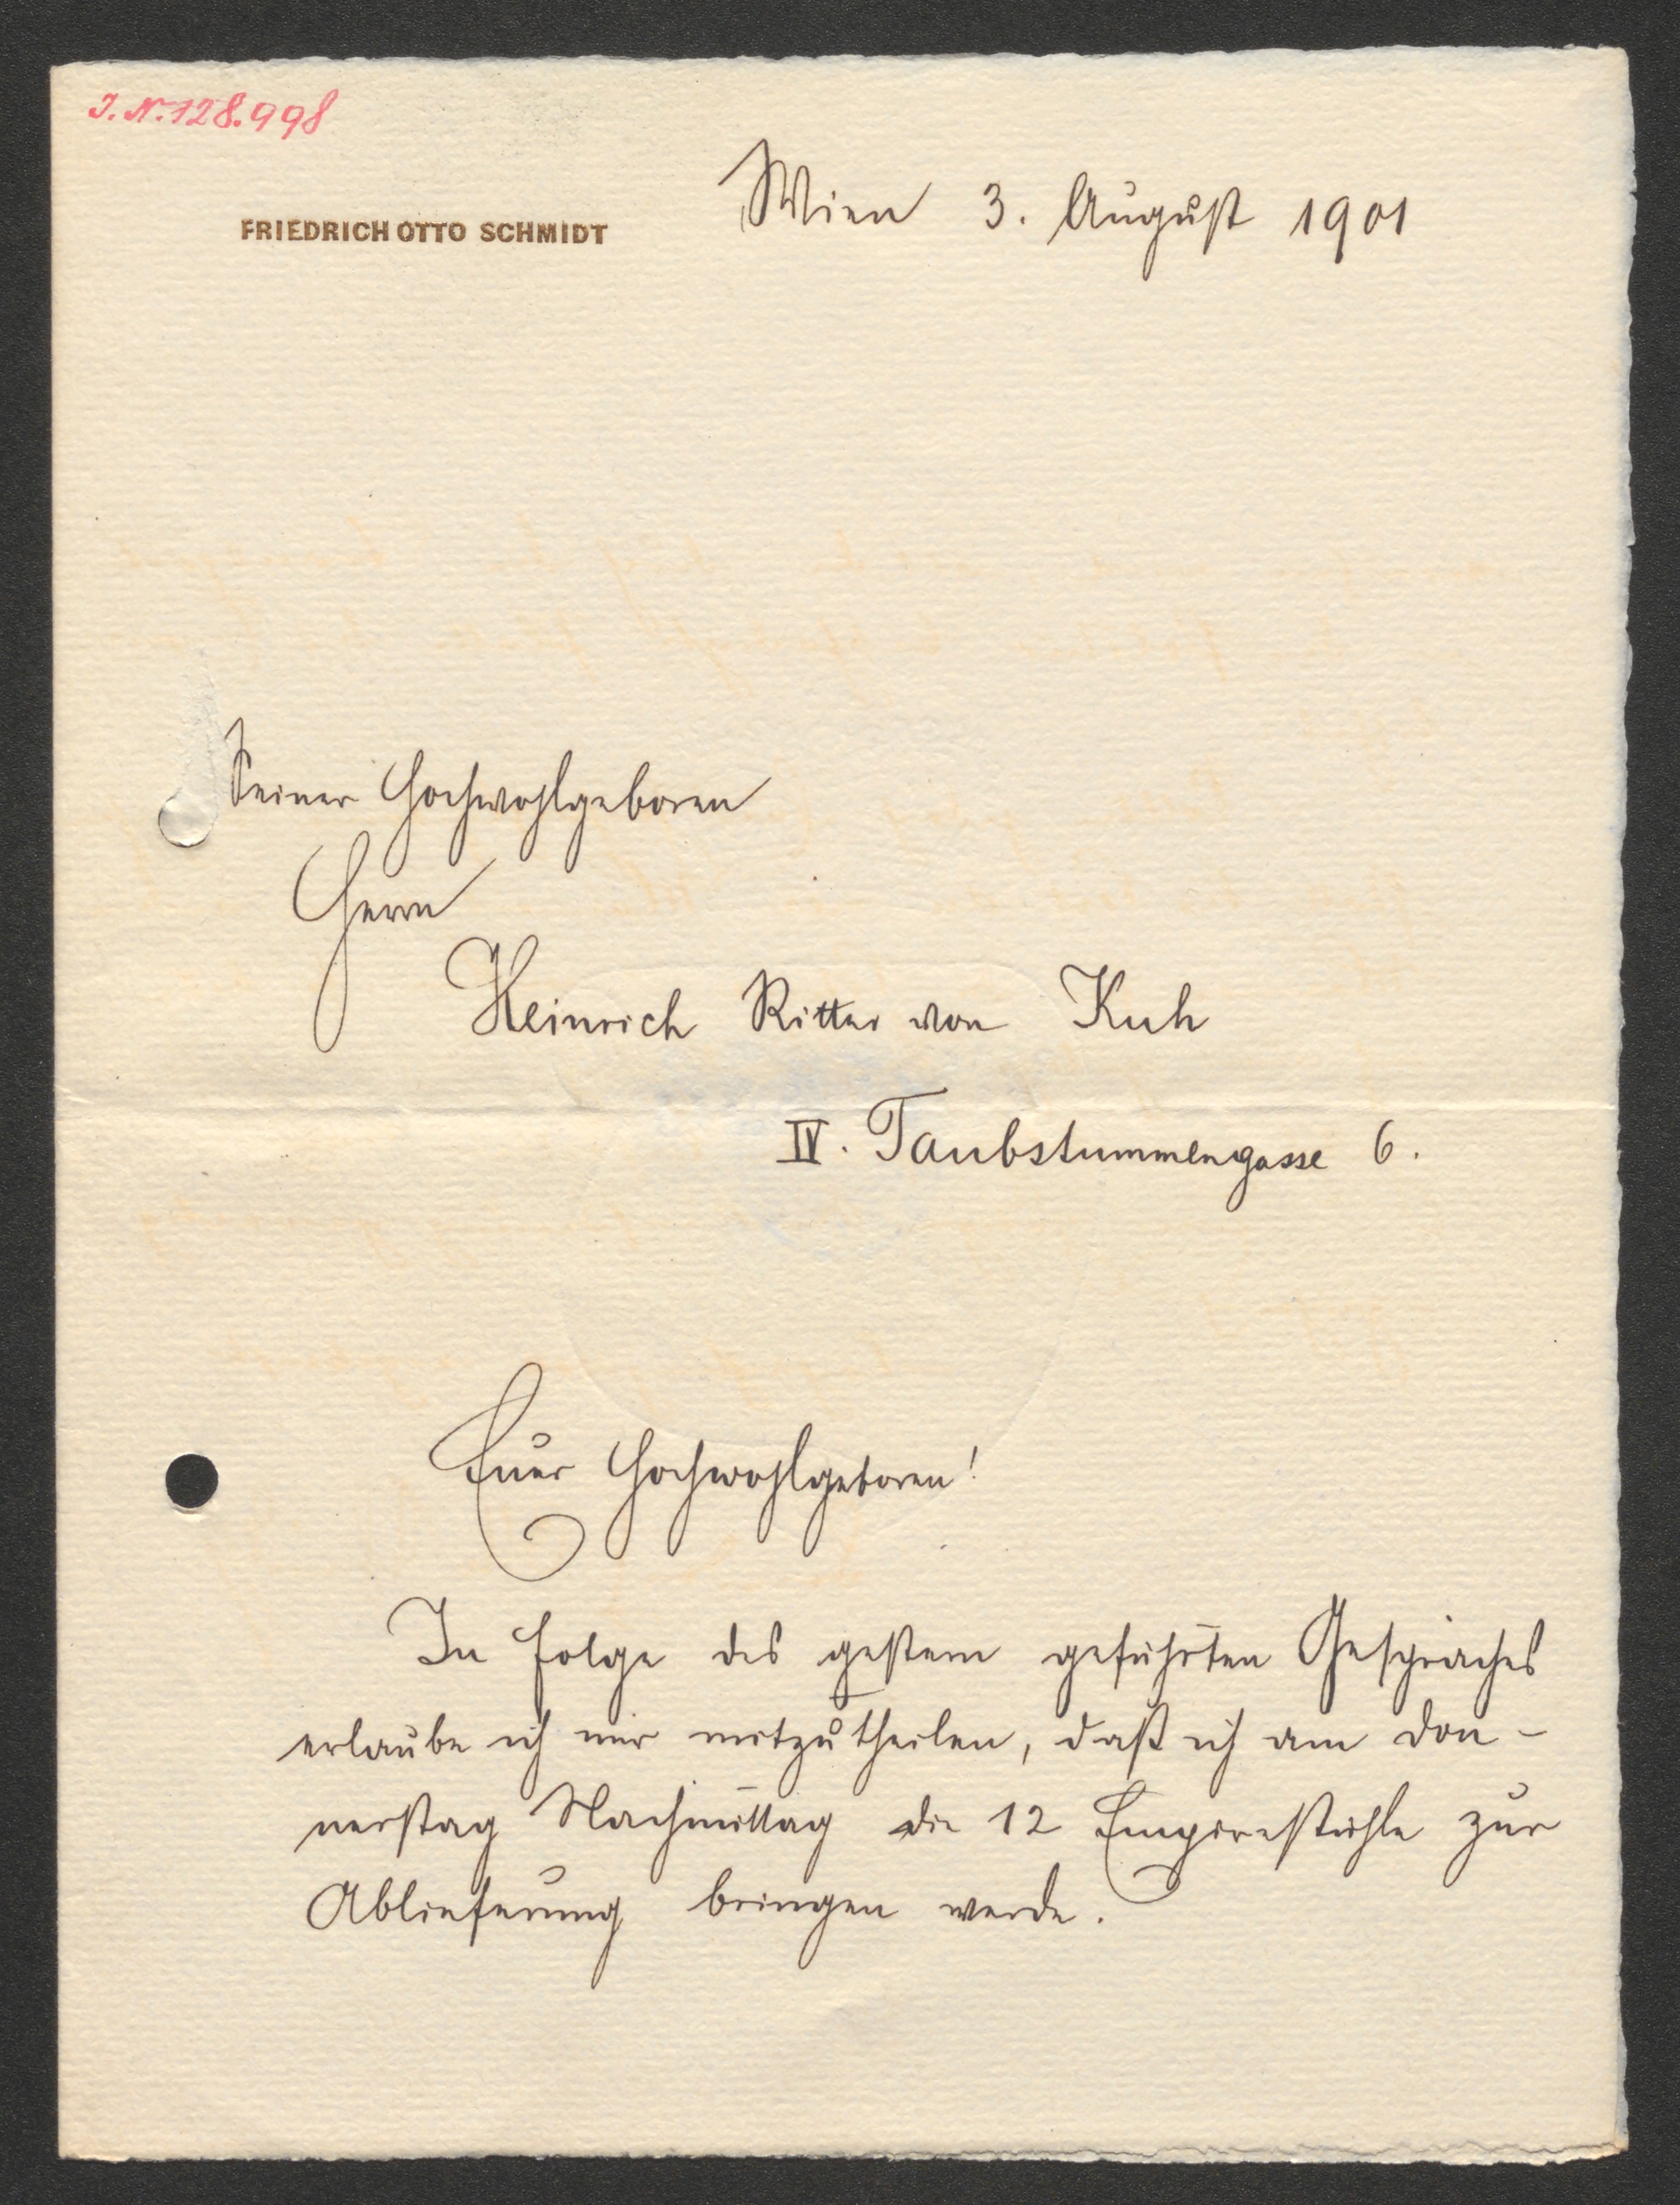 J. N. 128.998
Wien 3. August 1901
FRIEDRICH OTTO SCHMIDT
Seiner Hochwohlgeboren
Herrn
Heinrich Ritter von Kuh
IV. Taubstummengasse 6.
Euer Hochwohlgeboren!
In Folge des gestern geführten Gespräches
erlaube ich mir mitzutheilen, daß ich am Don-
nerstag Nachmittag die 12 Empirestühle zur
Ablieferung bringen werde.